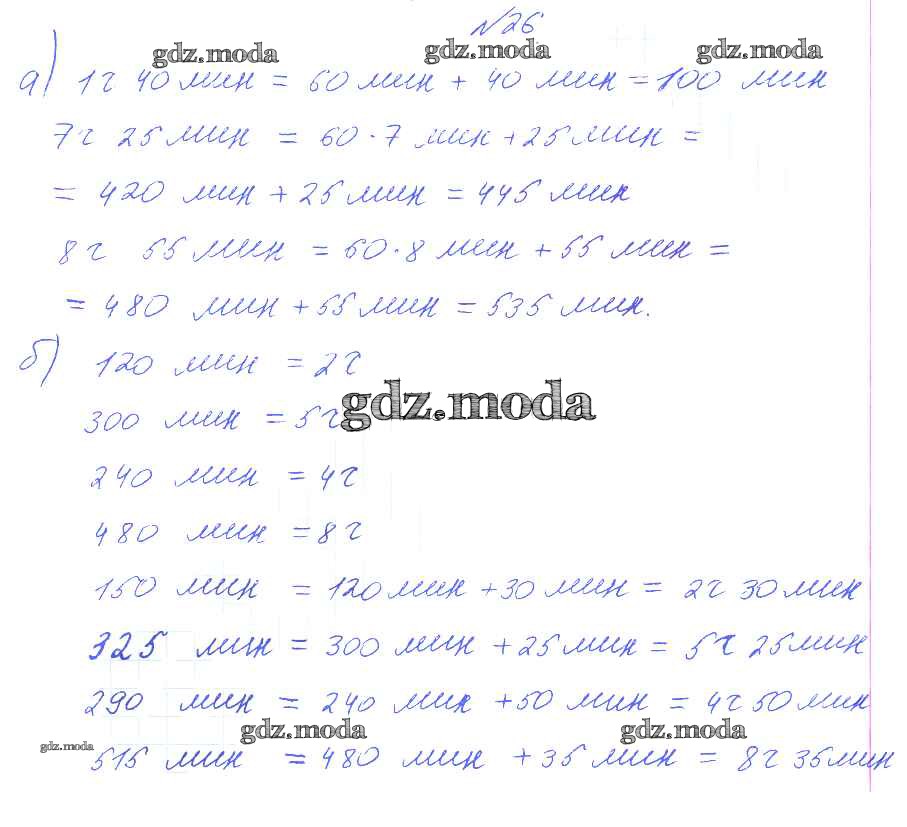 №26
gdz.moda gdz.moda gdz.moda
а) 1ч 40 мин = 60 мин + 40 мин = 100 мин
7ч 25 мин = 60·7 мин + 25 мин =
= 420 мин + 25 мин = 445 мин
8ч 55 мин = 60·8 мин + 55 мин =
= 480 мин + 55 мин = 535 мин.
б) 120 мин = 2ч
gdz.moda
300 мин = 5ч
240 мин = 4ч
480 мин = 8ч
150 мин = 120 мин + 30 мин = 2ч 30 мин
325 мин = 300 мин + 25 мин = 5ч 25 мин
290 мин = 240 мин + 50 мин = 4ч 50 мин
gdz.moda gdz.moda gdz.moda
515 мин = 480 мин + 35 мин = 8ч 35 мин